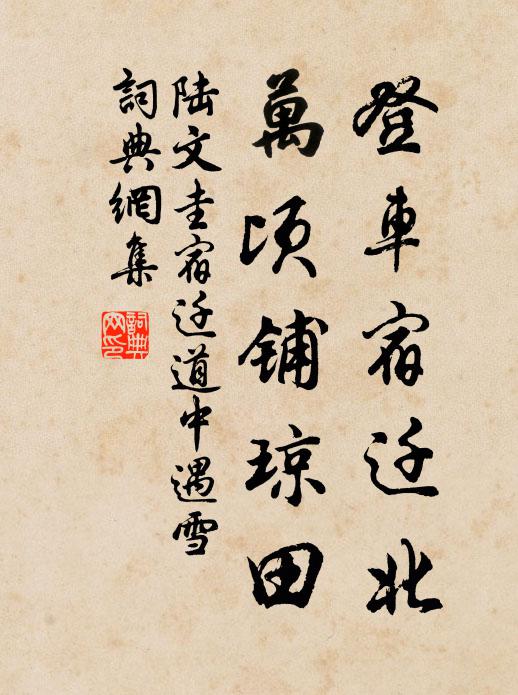 登車宿迁北
萬頃铺琼田
陆文圭宿迁道中遇雪
詞典網集
詞典网印